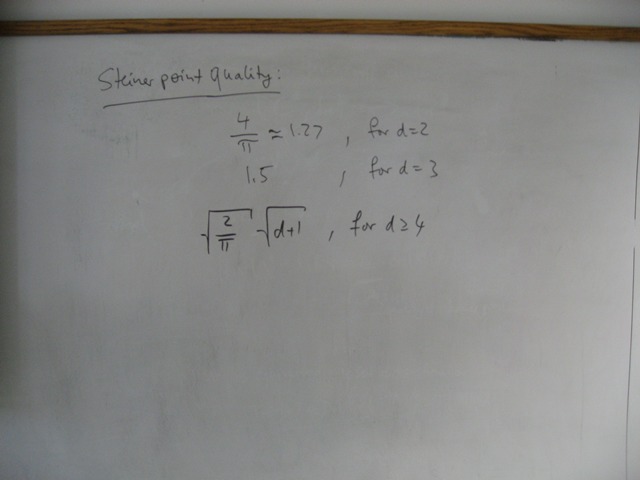 Steiner point Quality:
4/π ≃ 1.27 , for d=2
1.5 , for d=3
√(2/π) √(d+1) , for d≥4